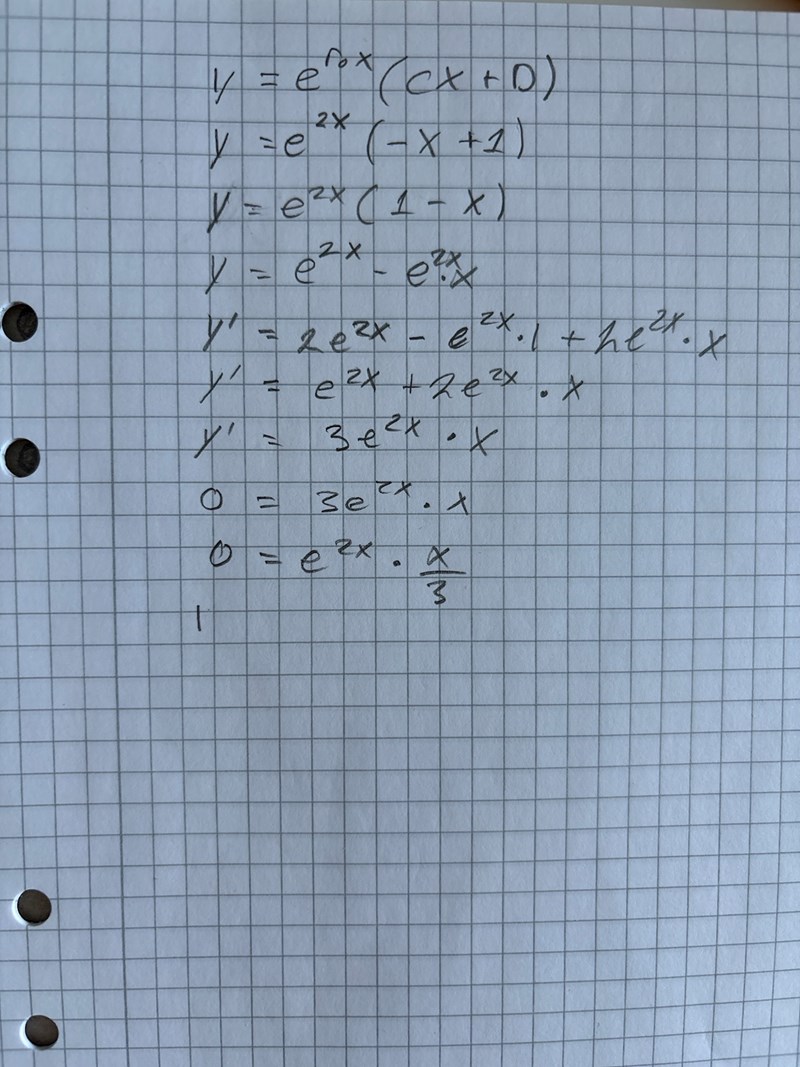 y = e^{r₀x}(Cx + D)
y = e^{2x}(-x + 1)
y = e^{2x}(1 - x)
y = e^{2x} - e^{2x}·x
y' = 2e^{2x} - e^{2x}·1 + 2e^{2x}·x
y' = e^{2x} + 2e^{2x}·x
y' = 3e^{2x}·x
0 = 3e^{2x}·x
0 = e^{2x}·\frac{x}{3}
|